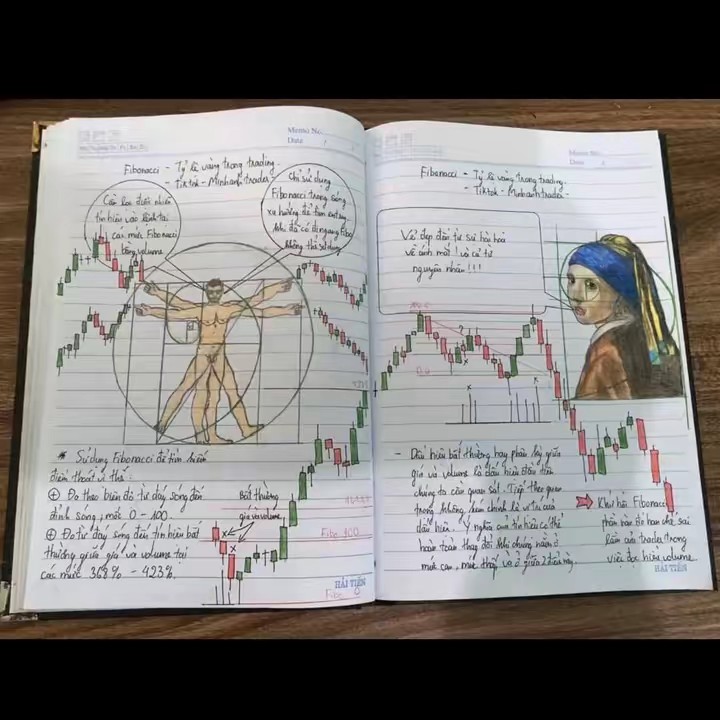 Memo No.
Date / /
Fibonacci - Tỷ lệ vàng trong trading.
- Tiktok - Minhanhtrader
Cần loại
tín hiệu vào lệnh tại
các mức Fibonacci
bằng volume
Chỉ sử dụng
Fibonacci trong sóng
xu hướng để tìm entry,
khi đã có đi ngang Fibo
không thể sử dụng
* Sử dụng Fibonacci để tìm kiếm
điểm thoát vị thế:
+ Đo theo biên độ từ đáy sóng đến
đỉnh sóng, mốc 0 - 100.
+ Đo từ đáy sóng đến tín hiệu bất
thường giữa giá và volume tại
các mức 368% - 423%.
Bất thường
giá và volume
x
x
Fibo 100
Fibo 0
HẢI TIẾN
Memo No.
Date / /
Fibonacci - Tỷ lệ vàng trong trading.
- Tiktok - Minhanhtrader -
Vẻ đẹp đến từ sự hài hòa
về ánh mắt! và cả tử
nguyên nhân!!!
100.0
0.0
?
x
x
- Dấu hiệu bất thường hay phân kỳ giữa
giá và volume là dấu hiệu đầu tiên
chúng ta cần quan sát. Tiếp theo quan
trọng không kém chính là vị trí của
dấu hiệu. Ý nghĩa của tín hiệu có thể
hoàn toàn thay đổi khi chúng nằm ở
mức cao, mức thấp và ở giữa 2 điều này.
Khi hồi Fibonacci
phân bản để hạn chế sai
lầm của trader trong
việc đọc hiểu volume.
HẢI TIẾN